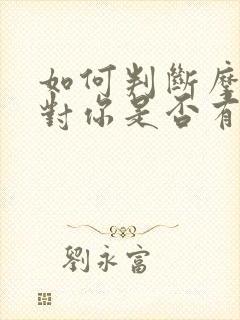 如何判斷
對你是否
劉永富